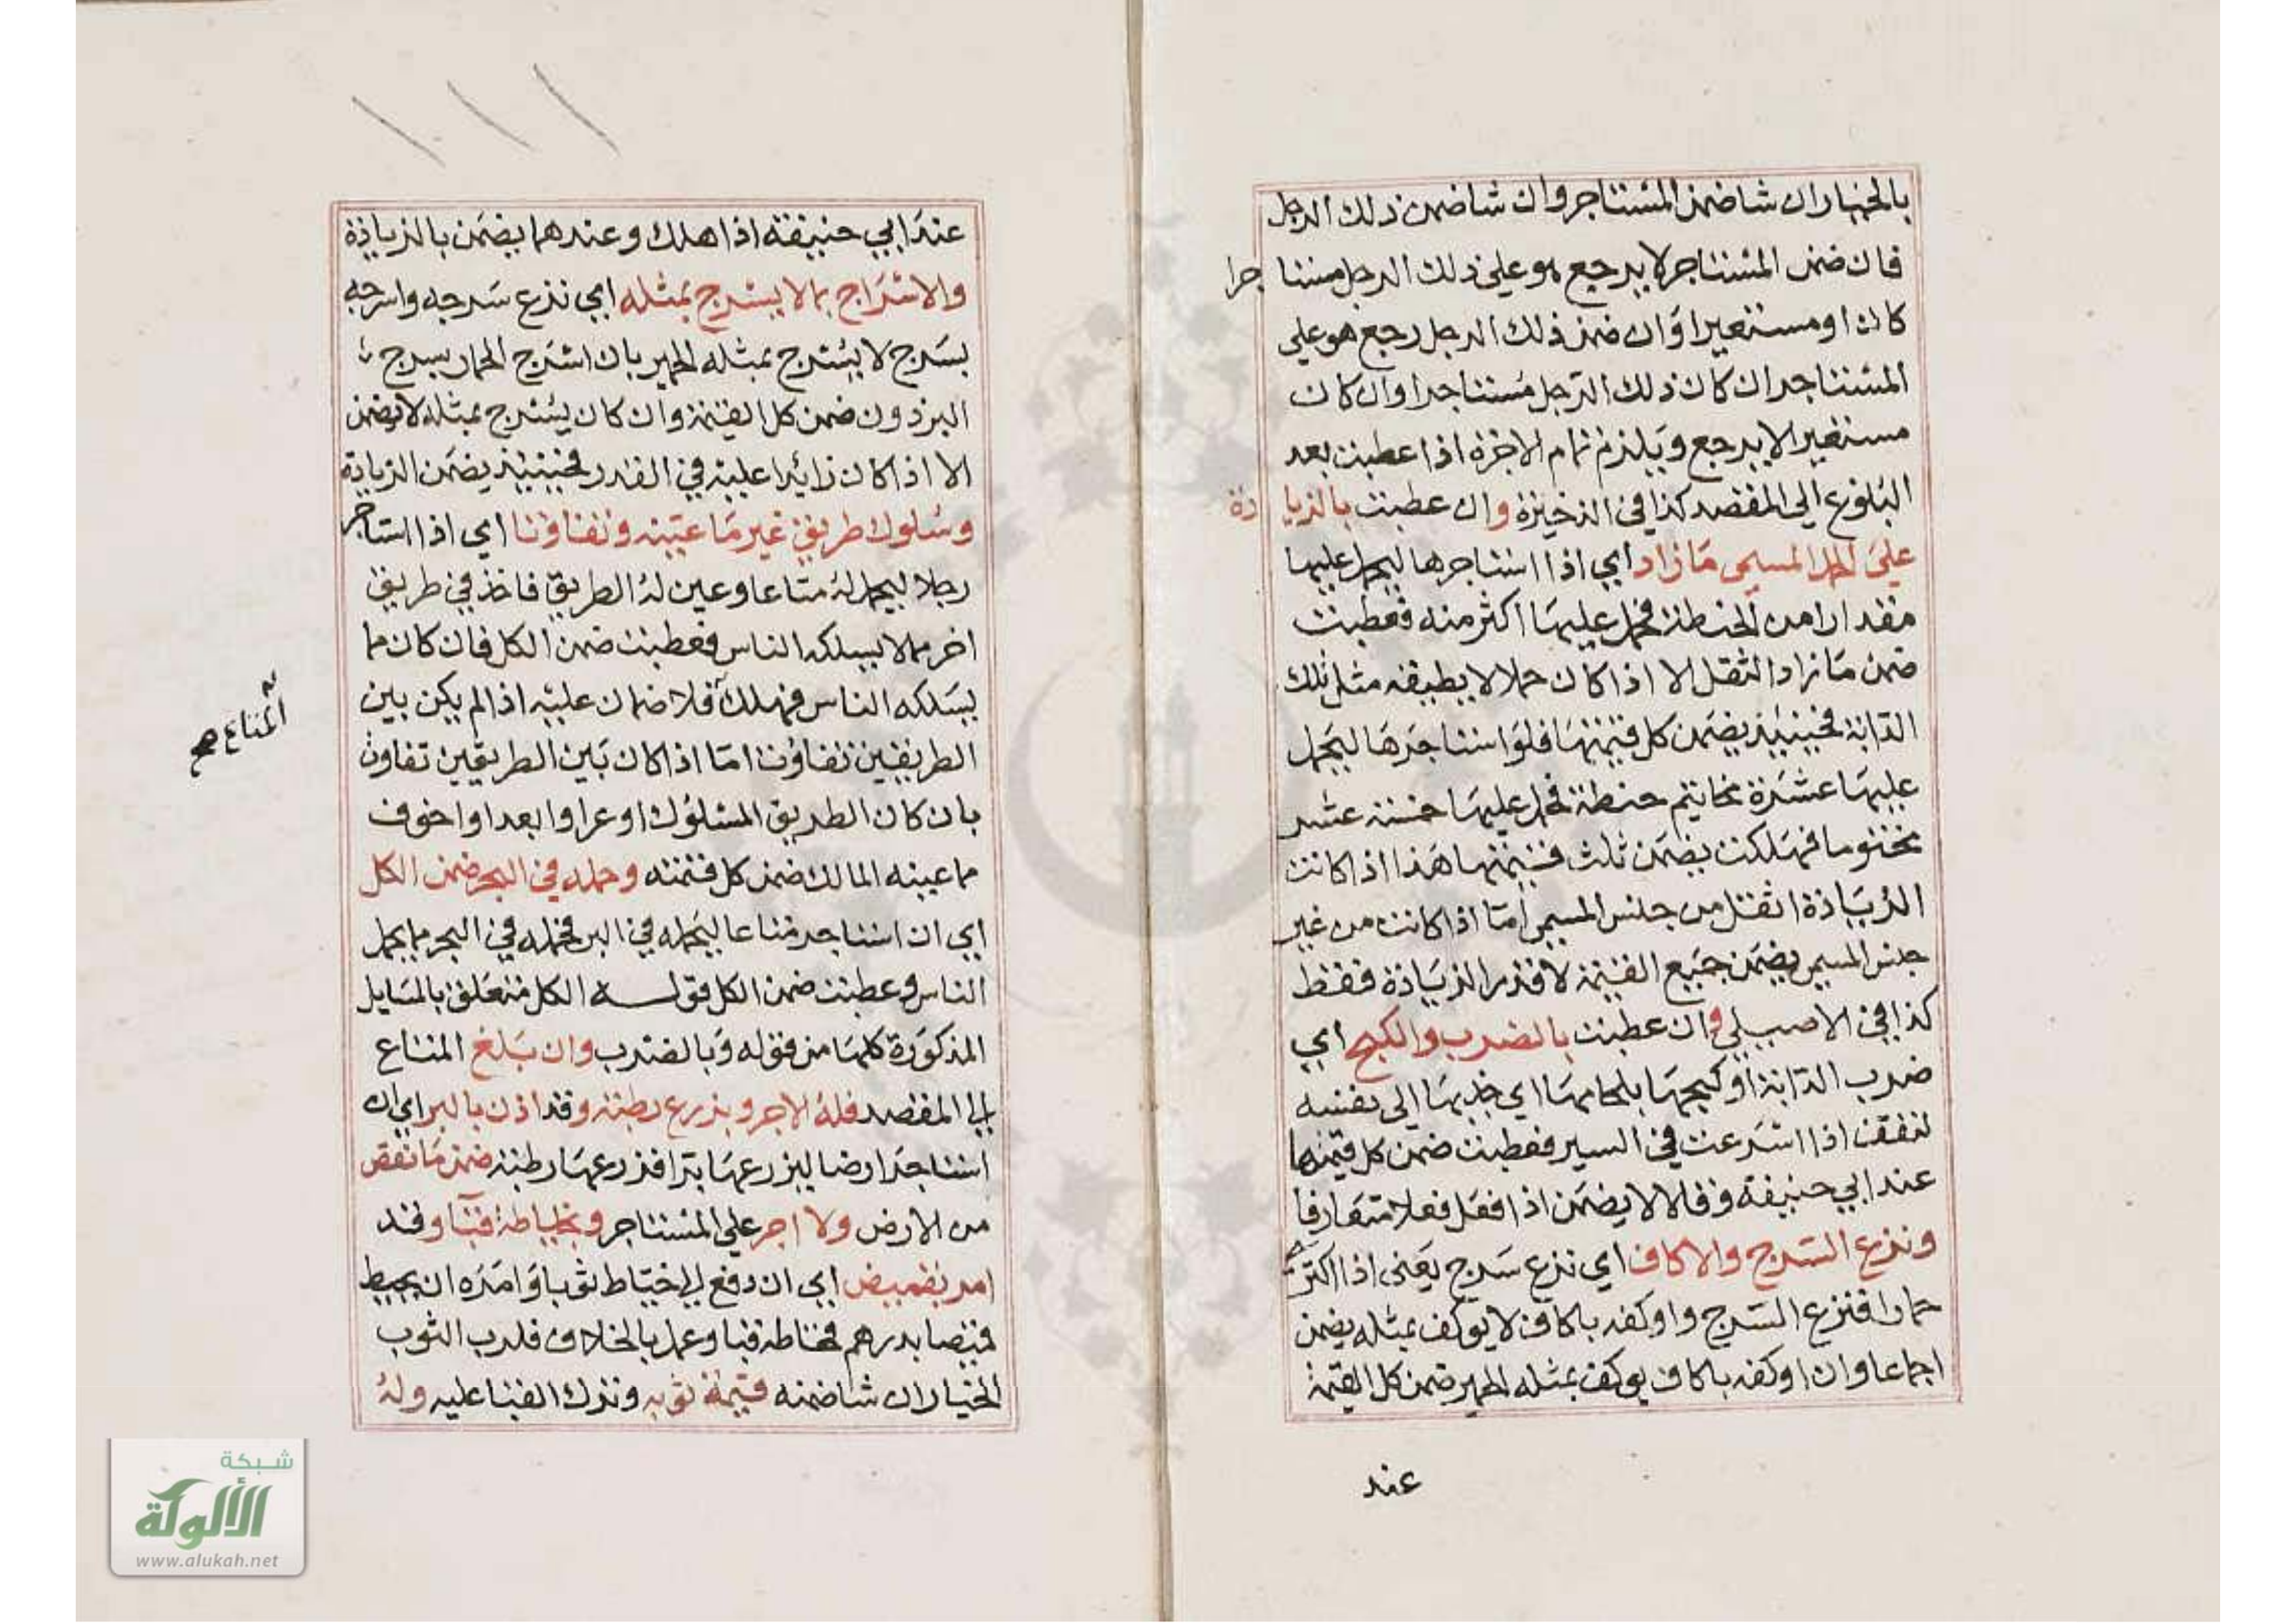 بالخيار ان شا ضمن المستاجر وان شا ضمن ذلك الرجل
فان ضمن المستاجر لا يرجع هو على ذلك الرجل مستاجرا
كان او مستعيرا وان ضمن ذلك الرجل رجع هو علي
المستاجر ان كان ذلك الرجل مستاجرا وان كان
مستعيرا لا يرجع ويلزم تمام الاجرة اذا عطبت بعد
البلوغ الى المقصد كذا في الذخيرة وان عطبت بالزيادة
على الحمل المسمى ما زاد اي اذا استاجرها ليحمل عليها
مقدارا من الحنطة فحمل عليها اكثر منه فعطبت
ضمن ما زاد الثقل الا اذا كان حملا لا يطيقه مثل تلك
الدابة فحينيذ يضمن كل قيمتها فلو استاجرها ليحمل
عليها عشرة مخاتيم حنطة فحمل عليها خمسة عشر
مختوما فهلكت يضمن ثلث قيمتها هذا اذا كانت
الزيادة اثقل من جنس المسمى اما اذا كانت من غير
جنس المسمى يضمن جميع القيمة لا قدر الزيادة فقط
كذا في الاصبيلي وان عطبت بالضرب والكبح اي
ضرب الدابة او كبحها بلجامها اي جذبها الى نفسه
لتقف اذا اسرعت في السير فعطبت ضمن كل قيمتها
عند ابي حنيفة وقالا لا يضمن اذا فعل فعلا متعارفا
ونزع السرج والاكاف اي نزع سرج يعني اذا اكترى
حمارا فنزع السرج واوكفه باكاف لا يوكف بمثله يضمن
اجماعا وان اوكفه باكاف يوكف بمثله الحمير ضمن كل القيمة
عند
عند ابي حنيفة اذا هلك وعندهما يضمن بالزيادة
والاسراج بما لا يسرج بمثله اي نزع سرجه واسرجه
بسرج لا يسرج بمثله الحمير بان اسرج الحمار بسرج
البرذون ضمن كل القيمة وان كان يسرج بمثله لا يضمن
الا اذا كان زائدا عليه في القدر فحينيذ يضمن الزيادة
وسلوك طريق غير ما عينه وتفاوتا اي اذا استاجر
رجلا ليحمل له متاعا وعين له الطريق فاخذ في طريق
اخر مما لا يسلكه الناس فعطبت ضمن الكل فان كان مما
يسلكه الناس فهلك فلا ضمان عليه اذا لم يكن بين
الطريقين تفاوت اما اذا كان بين الطريقين تفاوت
بان كان الطريق المسلوك اوعر او ابعد او اخوف
مما عينه المالك ضمن كل قيمته وحمله في البحر ضمن الكل
اي ان استاجر متاعا ليحمله في البر فحمله في البحر مما يحمل
الناس وعطبت ضمن الكل قوله الكل متعلق بالمسايل
المذكورة كلها من قوله وبالضرب وان بلغ المتاع
الى المقصد فله الاجر وبزرع رطبة وقد اذن بالبر اي ان
استاجر ارضا ليزرعها برا فزرعها رطبة ضمن ما نقص
من الارض ولا اجر علي المستاجر وبخياطة قبا وقد
امر بقميص اي ان دفع الى خياط ثوبا وامره ان يخيط
قميصا بدرهم فخاطه قبا وعمل بالخلاف فلرب الثوب
الخيار ان شا ضمنه قيمة ثوبه وترك القبا عليه وله
المتاع صح
شبكة
الألوكة
www.alukah.net